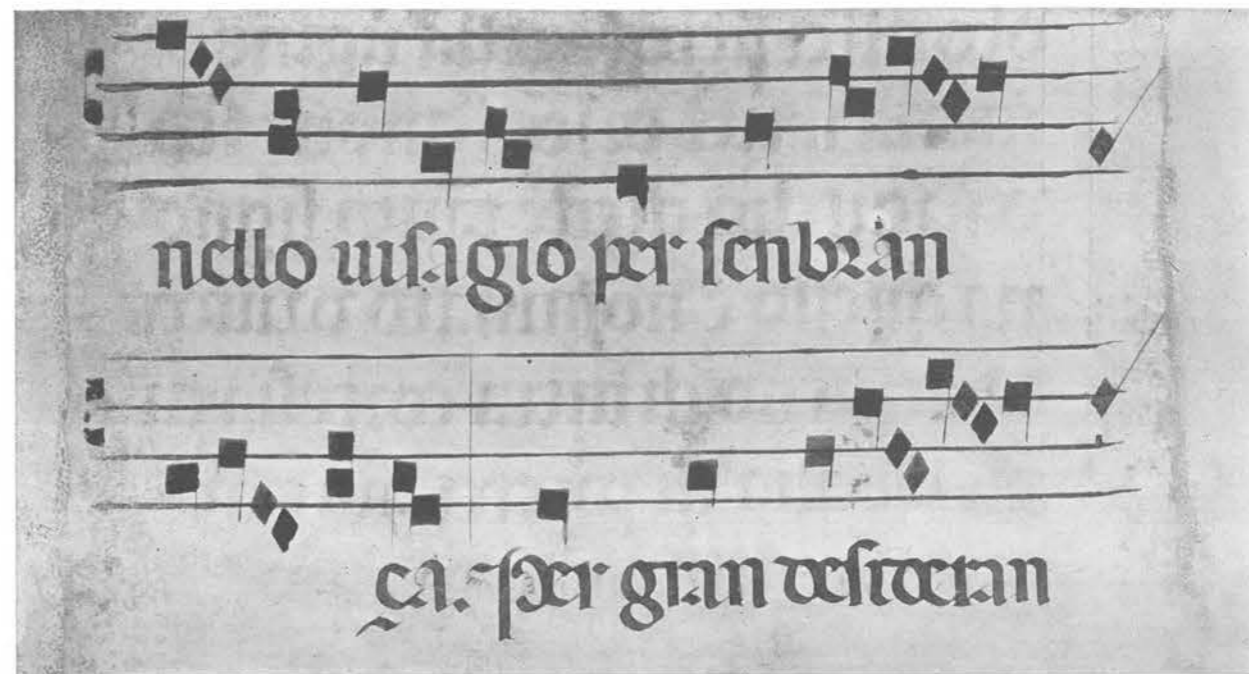 nello uiſagio per ſenbran
ça. Per gran deſideran